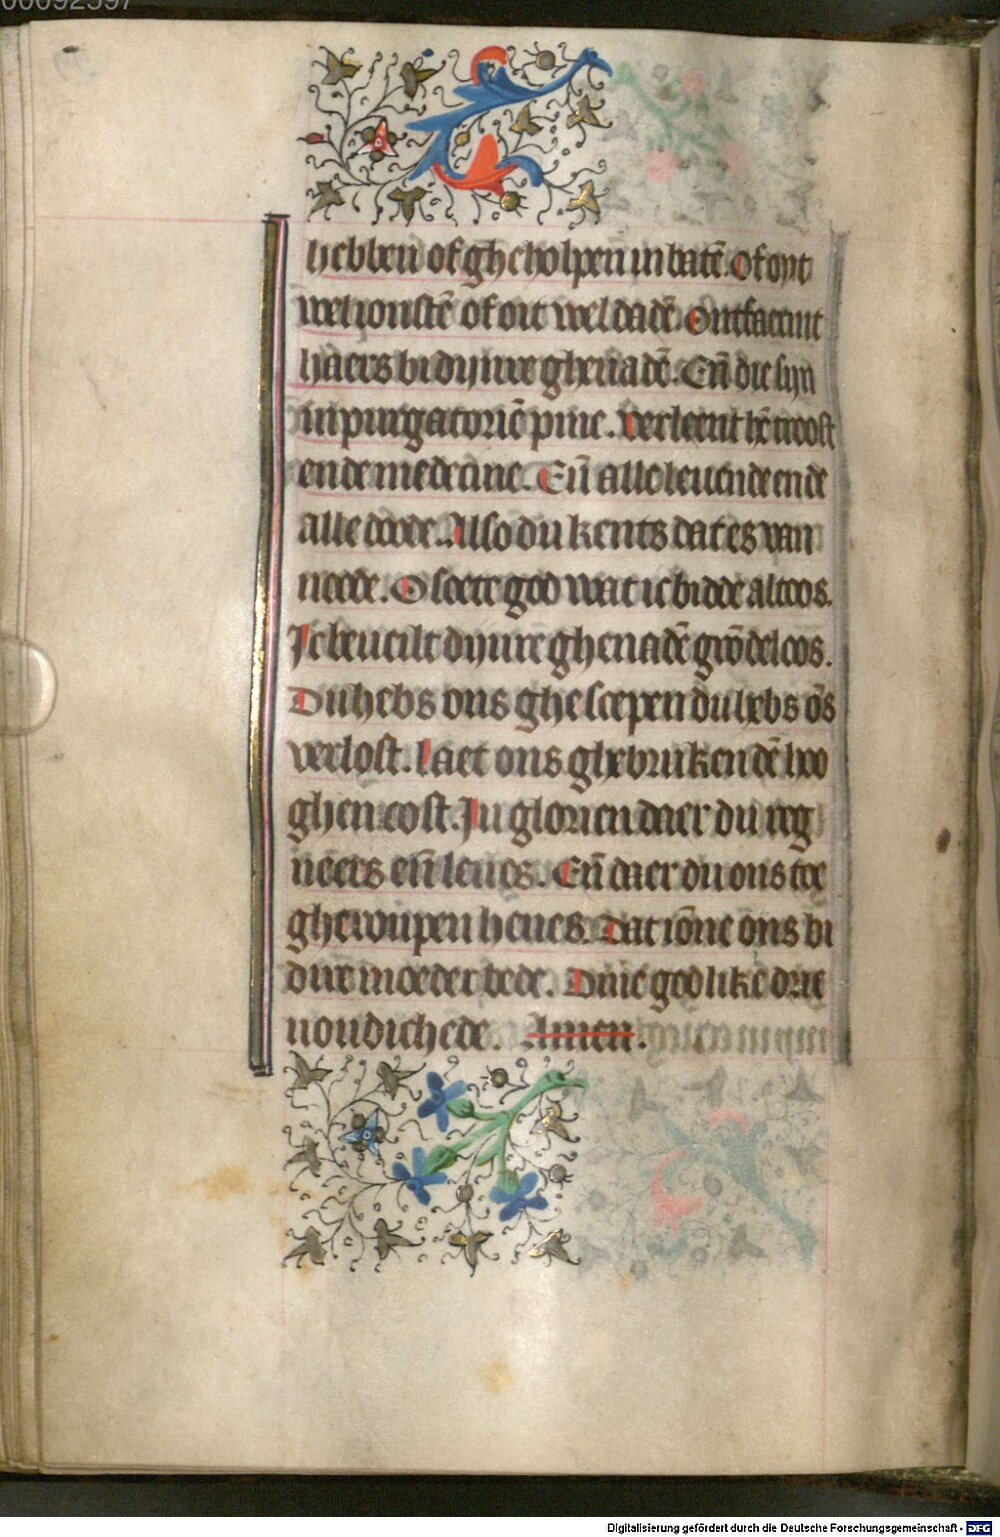 hebben of gheholpen in batē. Of oyt
wel ionstē of oit wel dadē. Ontfaermt
haers bi dijnre ghenadē. Eñ die sijn
in purgatoriē pine. Verleent hē troost
ende medecine. Eñ alle leuende ende
alle doode. Also du kents dat es van
noode. O soete god wat ic bidde altoos.
Ic beueilt dijnre ghenadē grōdeloos.
Du hebs ons ghescepen du hebs ōs
verlost. Laet ons ghebruken dē hoo
ghen cost. In glorien daer du reg
neers eñ leues. Eñ daer du ons toe
gheroupen heues. Dat iōne ons bi
dijnre moeder bede. Dine godlike drie
voudichede. Amen.
Digitalisierung gefördert durch die Deutsche Forschungsgemeinschaft - DFG